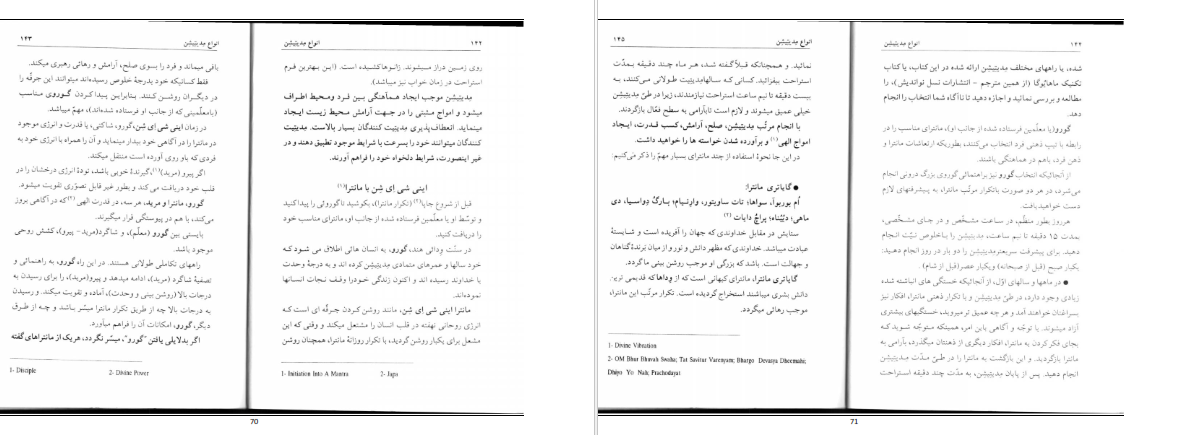 ۱۴۲ انواع مِدیتِیشِن
روی زمین دراز میشوند. زانوها کشیده است. (این بهترین فرم
استراحت در زمان خواب نیز میباشد).
مِدیتِیشِن موجب ایجاد هماهنگی بین فرد و محیط اطراف
میشود و امواج مثبتی را در جهت آرامش محیط زیست ایجاد
مینماید. انعطاف‌پذیری مدیتیت کنندگان بسیار بالاست. مدیتیت
کنندگان میتوانند خود را بسرعت با شرایط موجود تطبیق دهند و در
غیر اینصورت، شرایط دلخواه خود را فراهم آورند.
اینی شی اِی شِن با مانترا(۱)
قبل از شروع جاپا(۲) (تکرار مانترا)، بکوشید تا گوروئی را پیدا کنید
و توسّط او یا معلّمین فرستاده شده از جانب او، مانترای مناسب خود
را دریافت کنید.
در سنّت وِدائی هند، گورو، به انسان هائی اطلاق می شود که
خود سالها و عمرهای متمادی مِدیتِیشِن کرده اند و به درجهٔ وحدت
با خداوند رسیده اند و اکنون زندگی خود را وقف نجات انسانها
نموده‌اند.
مانترا اینی شی اِی شِن، مانند روشن کردن جرقّه ای است که
انرژی روحانی نهفته در قلب انسان را مشتعل میکند و وقتی که این
مشعل برای یکبار روشن گردید، با تکرار روزانهٔ مانترا، همچنان روشن
1- Initiation Into A Mantra 2- Japa
انواع مِدیتِیشِن ۱۴۳
باقی میماند و فرد را بسوی صلح، آرامش و رهائی رهبری میکند.
فقط کسانیکه خود بدرجهٔ خلوص رسیده‌اند میتوانند این جرقّه را
در دیگران روشن کنند. بنابراین پیدا کردن گوروی مناسب
(یا معلّمینی که از جانب او فرستاده شده‌اند)، مهمّ میباشد.
در زمان اینی شی اِی شِن، گورو، شاکتی، یا قدرت و انرژی موجود
در مانترا را در آگاهی خود بیدار مینماید و آن را همراه با انرژی خود به
فردی که باو روی آورده است منتقل میکند.
اگر پیرو (مرید)(۱)، گیرندهٔ خوبی باشد، تودهٔ انرژی درخشان را در
قلب خود دریافت می کند و بطور غیر قابل تصوّری تقویت میشود.
گورو، مانترا و مرید، هر سه، در قدرت الهی(۲) که در آگاهی بروز
می‌کند، با هم در پیوستگی قرار میگیرند.
بایستی بین گورو (معلّم)، و شاگرد (مرید- پیرو)، کشش روحی
موجود باشد.
راههای تکاملی طولانی هستند. در این راه گورو، به راهنمائی و
تصفیهٔ شاگرد (مرید)، ادامه میدهد و پیرو (مرید)، را برای رسیدن به
درجات بالا (روشن بینی و وحدت)، آماده و تقویت میکند. و رسیدن
به درجات بالا چه از طریق تکرار مانترا میسّر باشد و چه از طرق
دیگر، گورو، امکانات آن را فراهم میآورد.
اگر بدلایلی یافتن "گورو"، میسّر نگردد، هر یک از مانتراهای گفته
1- Disciple 2- Divine Power
70
۱۴۴ انواع مِدیتِیشِن
شده، یا راههای مختلف مدیتیشن ارائه شده در این کتاب، یا کتاب
تکنیک ماهایُوگا (از همین مترجم - انتشارات نسل نواندیش)، را
مطالعه و بررسی نمائید و اجازه دهید تا ناآگاه شما انتخاب را انجام
دهد.
گورو (یا معلّمین فرستاده شده از جانب او)، مانترای مناسب را در
رابطه با تیپ ذهنی فرد انتخاب می‌کنند، بطوریکه ارتعاشات مانترا و
ذهن فرد، باهم در هماهنگی باشند.
از آنجائیکه انتخاب گورو نیز براهنمائی گوروی بزرگ درونی انجام
می‌شود، در هر دو صورت با تکرار مرتّب مانترا، به پیشرفتهای لازم
دست خواهید یافت.
هر روز بطور منظّم، در ساعت مشخّص و در جای مشخّصی،
بمدت ۱۵ دقیقه تا نیم ساعت، مِدیتِیشِن را با خلوص نیّت انجام
دهید. برای پیشرفت سریعتر مِدیتِیشِن را دو بار در روز انجام دهید:
یکبار صبح (قبل از صبحانه) و یکبار عصر (قبل از شام).
● در ماهها و سالهای اوّل، از آنجائیکه خستگی های انباشته شده
زیادی وجود دارد، در طیّ مدیتیشن و با تکرار ذهنی مانترا، افکار نیز
بسراغتان خواهند آمد و هر چه عمیق تر میروید، خستگیهای بیشتری
آزاد میشوند. با توجّه و آگاهی باین امر، همینکه متوجّه شوید که
بجای فکر کردن به مانترا، افکار دیگری از ذهنتان میگذرد، بآرامی به
مانترا بازگردید. و این بازگشت به مانترا را در طیّ مدّت مِدیتِیشِن
انجام دهید. پس از پایان مِدیتِیشِن، به مدّت چند دقیقه استراحت
انواع مِدیتِیشِن ۱۴۵
نمائید. و همچنانکه قبلاً گفته شد، هر ماه چند دقیقه بمدّت
استراحت بیفزائید. کسانی که سالها مدیتیت طولانی می‌کنند، به
بیست دقیقه تا نیم ساعت استراحت نیازمندند، زیرا در طیّ مِدیتِیشِن
خیلی عمیق میشوند و لازم است تا بآرامی به سطح فعّال بازگردند.
با انجام مرتّب مِدیتِیشِن، صلح، آرامش، کسب قدرت، ایجاد
امواج الهی(۱) و برآورده شدن خواسته ها را خواهید داشت.
در این جا نحوهٔ استفاده از چند مانترای بسیار مهمّ را ذکر می‌کنیم:
● گایاتری مانترا:
اُم بوربوآ، سواها، تات ساویتور، وارنیام؛ بارگُ دِواسیا، دی
ماهی؛ دیُیُناه؛ پراچُ دایات (۲)
ستایش در مقابل خداوندی که جهان را آفریده است و شایستهٔ
عبادت میباشد. خداوندی که مظهر دانش و نور و از میان برندهٔ گناهان
و جهالت است. باشد که بزرگی او موجب روشن بینی ما گردد.
گایاتری مانترا، مانترای کیهانی است که از وِداها که قدیمی ترین
دانش بشری میباشند استخراج گردیده است. تکرار مرتّب این مانترا،
موجب رهائی میگردد.
1- Divine Vibration
2- OM Bhur Bhuvah Swaha; Tat Savitur Varenyam; Bhargo Devasya Dheemahi;
Dhiyo Yo Nah; Prachodayat
71